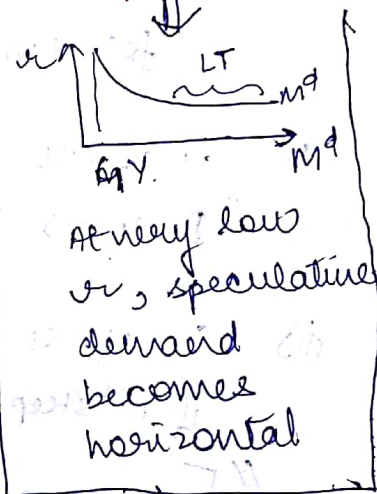 r
LT
Mᵈ
Mᵈ
At very low
r, speculative
demand
becomes
horizontal